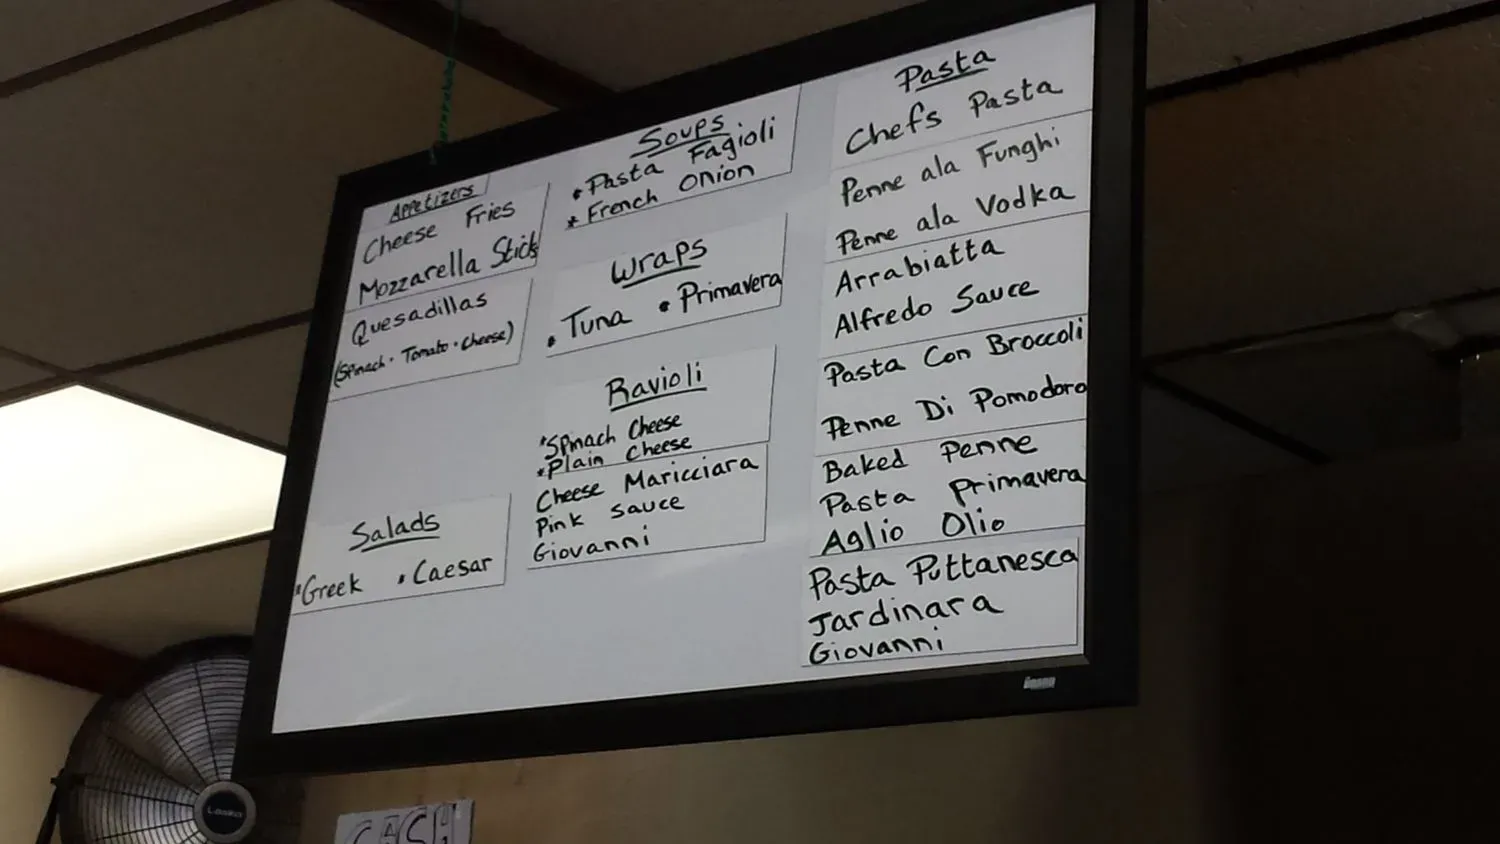 Appetizers
Cheese Fries
Mozzarella Sticks
Quesadillas
(Spinach • Tomato • cheese)
Salads
*Greek • Caesar
Soups
• Pasta Fagioli
* French Onion
Wraps
• Tuna • Primavera
Ravioli
*Spinach Cheese
*Plain Cheese
Cheese Maricciara
Pink Sauce
Giovanni
Pasta
Chefs Pasta
Penne ala Funghi
Penne ala Vodka
Arrabiatta
Alfredo Sauce
Pasta Con Broccoli
Penne Di Pomodoro
Baked Penne
Pasta Primavera
Aglio Olio
Pasta Puttanesca
Jardinara
Giovanni
Lasko
CASH